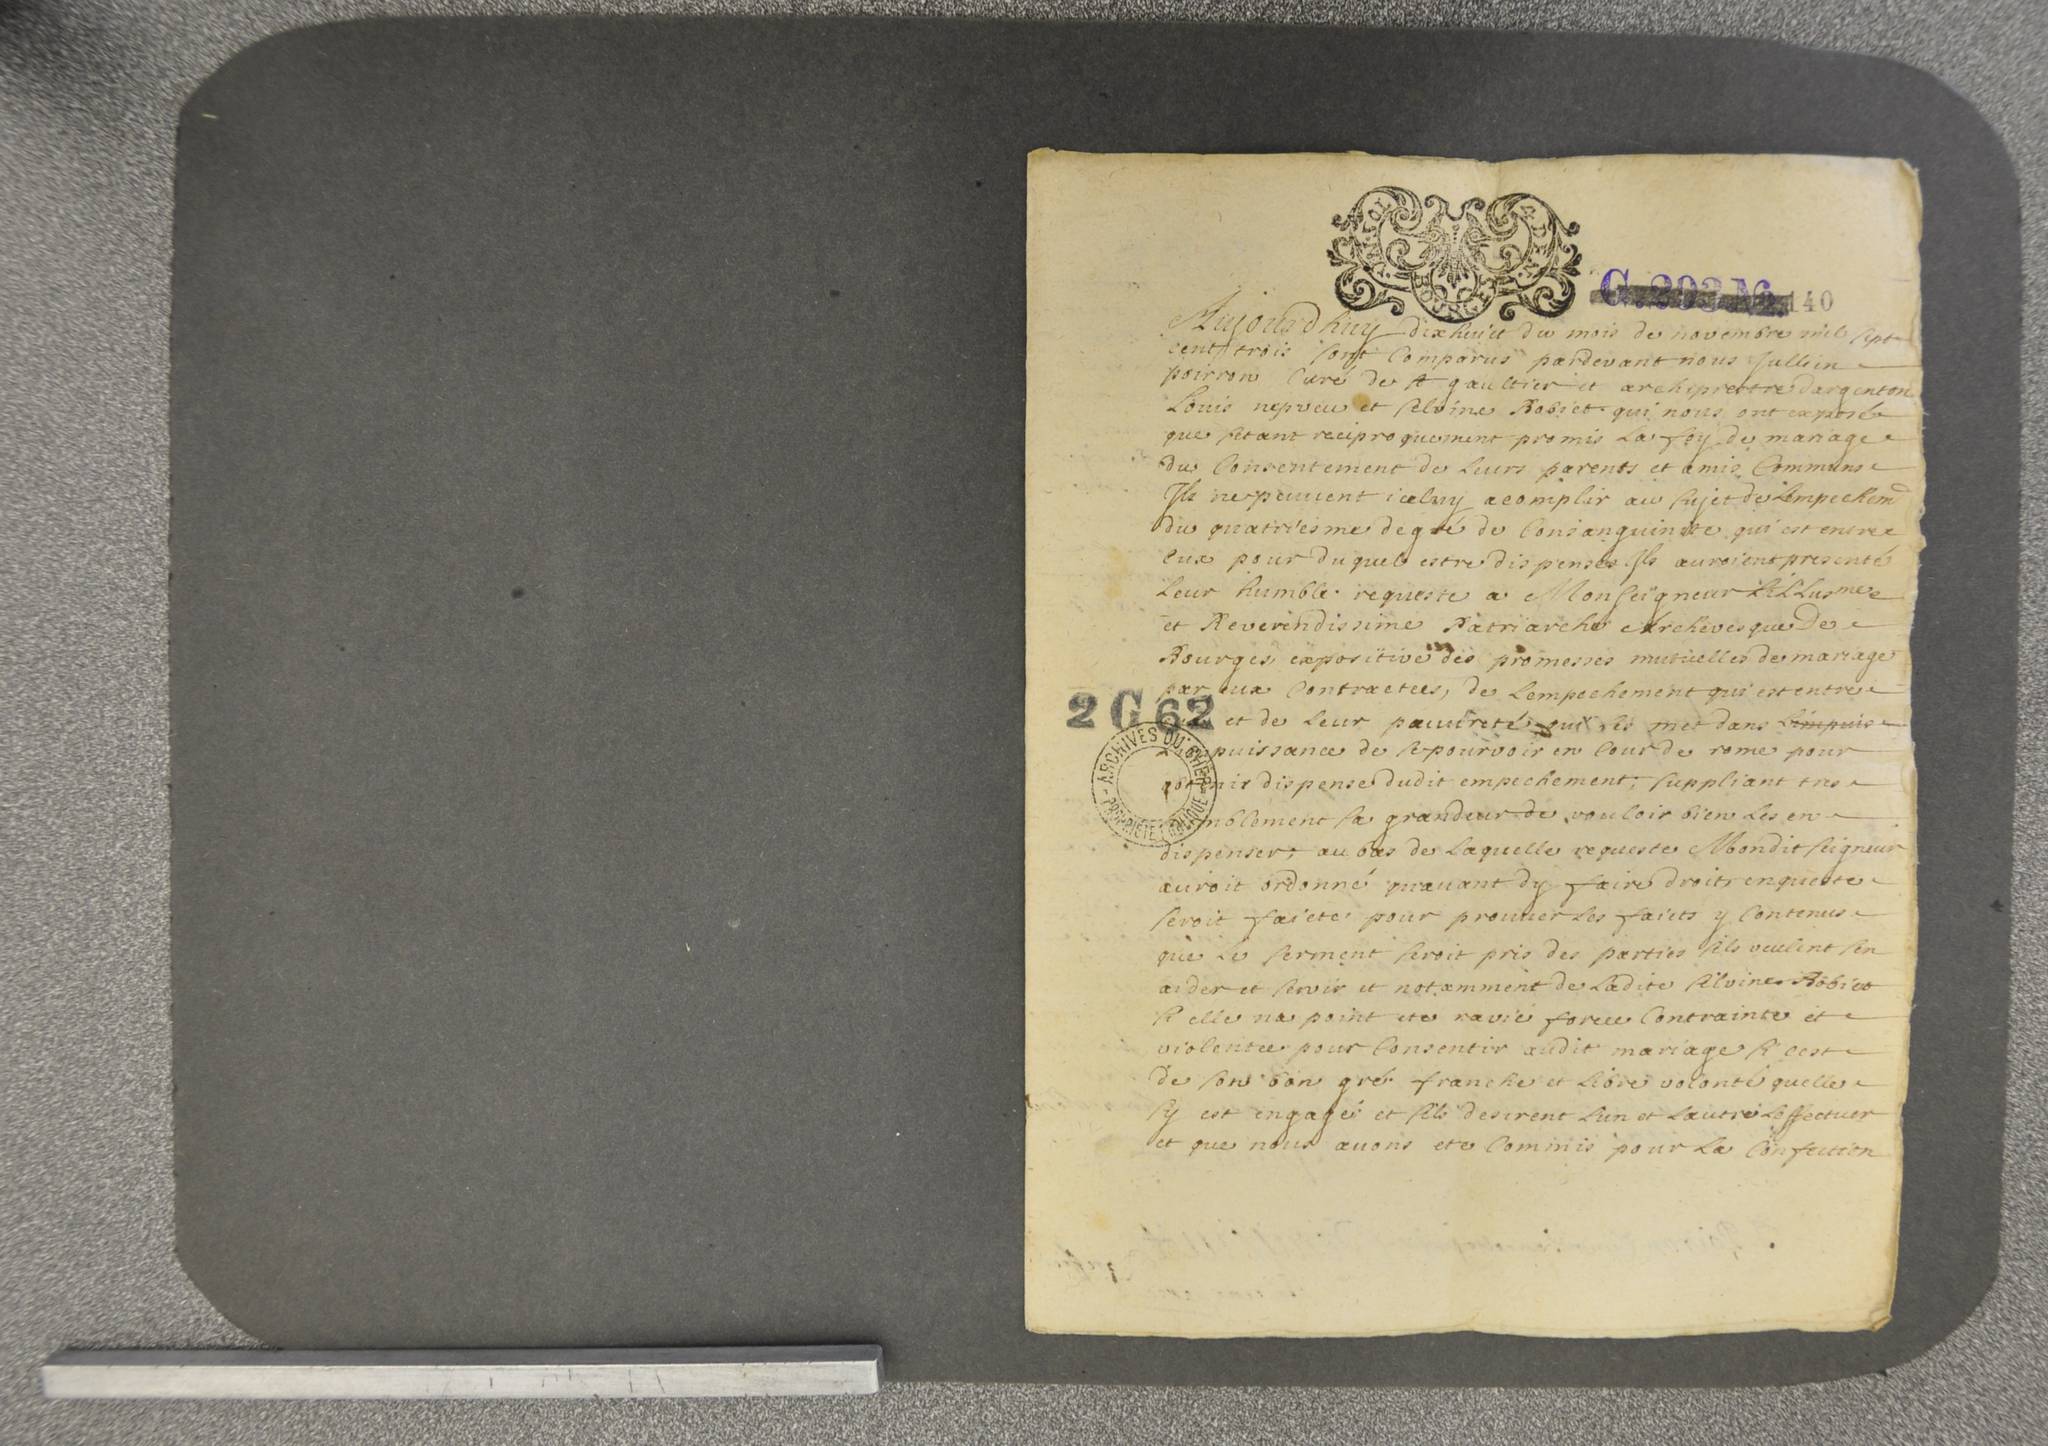 G. 203 A6 140
Aujourdhuy dixhuict du mois de novembre mil sept
cent trois sont Comparus pardevant nous Jullien
poirron Curé de st gaultier et archiprettre dargenton
Louis nepveu et selvine Robiet qui nous ont exposé
que setant reciproquement promis La foy de mariage
du Consentement de Leurs parents et amis Communs
Ils ne peuvent icelluy acomplir au sujet de Lempechemt
du quatriesme degré de Consanguinite qui est entre
Eux pour duquel estre dispensés Ils auroient presenté
Leur humble requeste a Monseigneur Lillusme
et Reverendissime Patriarche Archevesque De
Bourges, expositive des promesses mutuelles de mariage
par eux Contractees, de Lempechement qui est entre
2 G 62
et de Leur pauvreté qui les met dans Limpuis
puissance de se pourvoir en Cour de rome pour
obtenir dispense dudit empechement, suppliant tres
humblement sa grandeur de vouloir bien Les en
dispenser, au bas de Laquelle requeste Mondit seigneur
auroit ordonné quavant dy faire droit enqueste
seroit faicte pour prouver Les faicts y Contenus
que Le serment seroit pris des parties sils veulent sen
aider et servir et notamment de Ladite silvine Robiet
si elle na point ete ravie forcee Contrainte et
violentee pour Consentir audit mariage si cest
de son bon gré franche et Libre volonté quelle
sy est engagé et sils desirent Lun et Lautre Leffectuer
et que nous avons ete Commis pour La Confection
ARCHIVES DU CHER
PROPRIETE PUBLIQUE